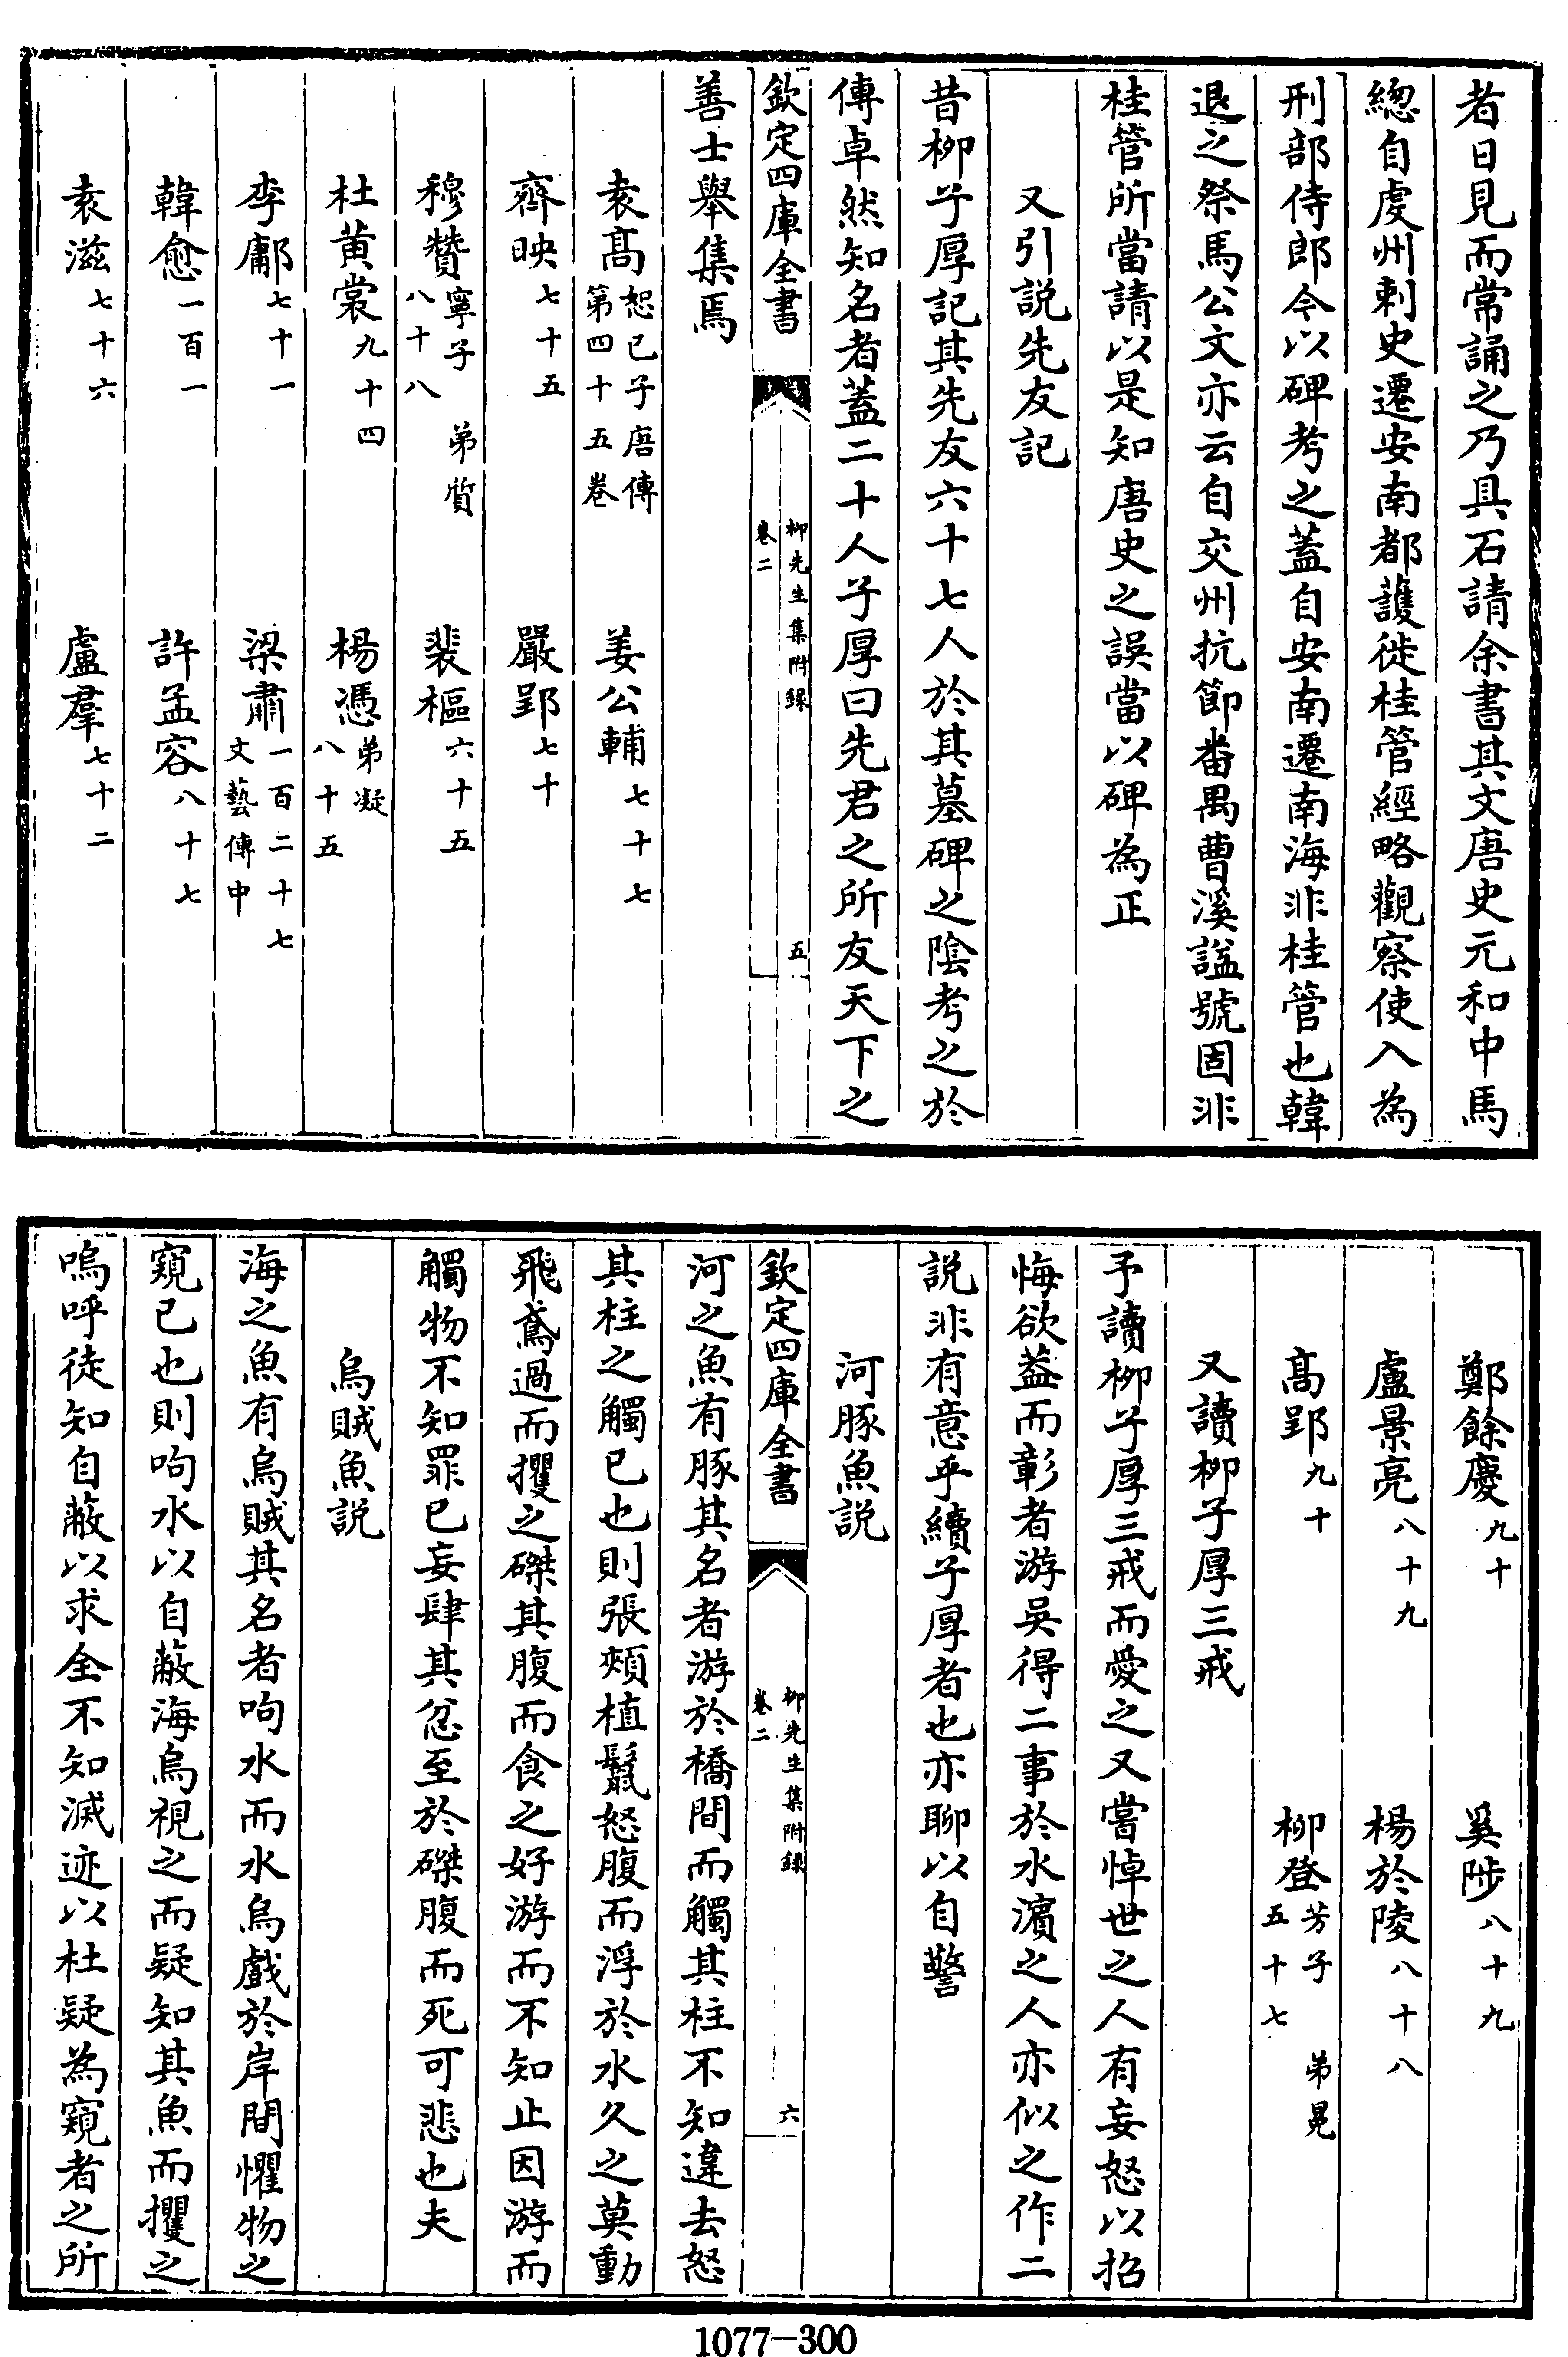 者日見而常誦之乃具石請余書其文唐史元和中馬
總自虔州刺史遷安南都護徙桂管經略觀察使入為
刑部侍郎今以碑考之蓋自安南遷南海非桂管也韓
退之祭馬公文亦云自交州抗節番禺曹溪諡號固非
桂管所當請以是知唐史之誤當以碑為正
又引説先友記
昔栁子厚記其先友六十七人於其墓碑之隂考之於
傳卓然知名者蓋二十人子厚曰先君之所友天下之
欽定四庫全書
栁先生集附録
卷二
五
善士舉集焉
袁髙恕已子唐傳
第四十五卷
姜公輔七十七
齊映七十五
嚴郢七十
穆贊寧子 弟質
八十八
裴樞六十五
杜黄裳九十四
楊憑弟凝
八十五
李鄘七十一
梁肅一百二十七
文藝傳中
韓愈一百一
許孟容八十七
袁滋七十六
盧羣七十二
鄭餘慶九十
奚陟八十九
盧景亮八十九
楊於陵八十八
髙郢九十
栁登芳子 弟冕
五十七
又讀栁子厚三戒
予讀栁子厚三戒而愛之又嘗悼世之人有妄怒以招
悔欲葢而彰者游吳得二事於水濵之人亦似之作二
説非有意乎續子厚者也亦聊以自警
河豚魚説
欽定四庫全書
栁先生集附録
卷二
六
河之魚有豚其名者游於橋間而觸其柱不知違去怒
其柱之觸已也則張頰植鬛怒腹而浮於水久之莫動
飛鳶過而攫之磔其腹而食之好游而不知止因游而
觸物不知罪已妄肆其忿至於磔腹而死可悲也夫
烏賊魚説
海之魚有烏賊其名者呴水而水烏戲於岸間懼物之
窺已也則呴水以自蔽海烏視之而疑知其魚而攫之
嗚呼徒知自蔽以求全不知滅迹以杜疑為窺者之所
1077-300